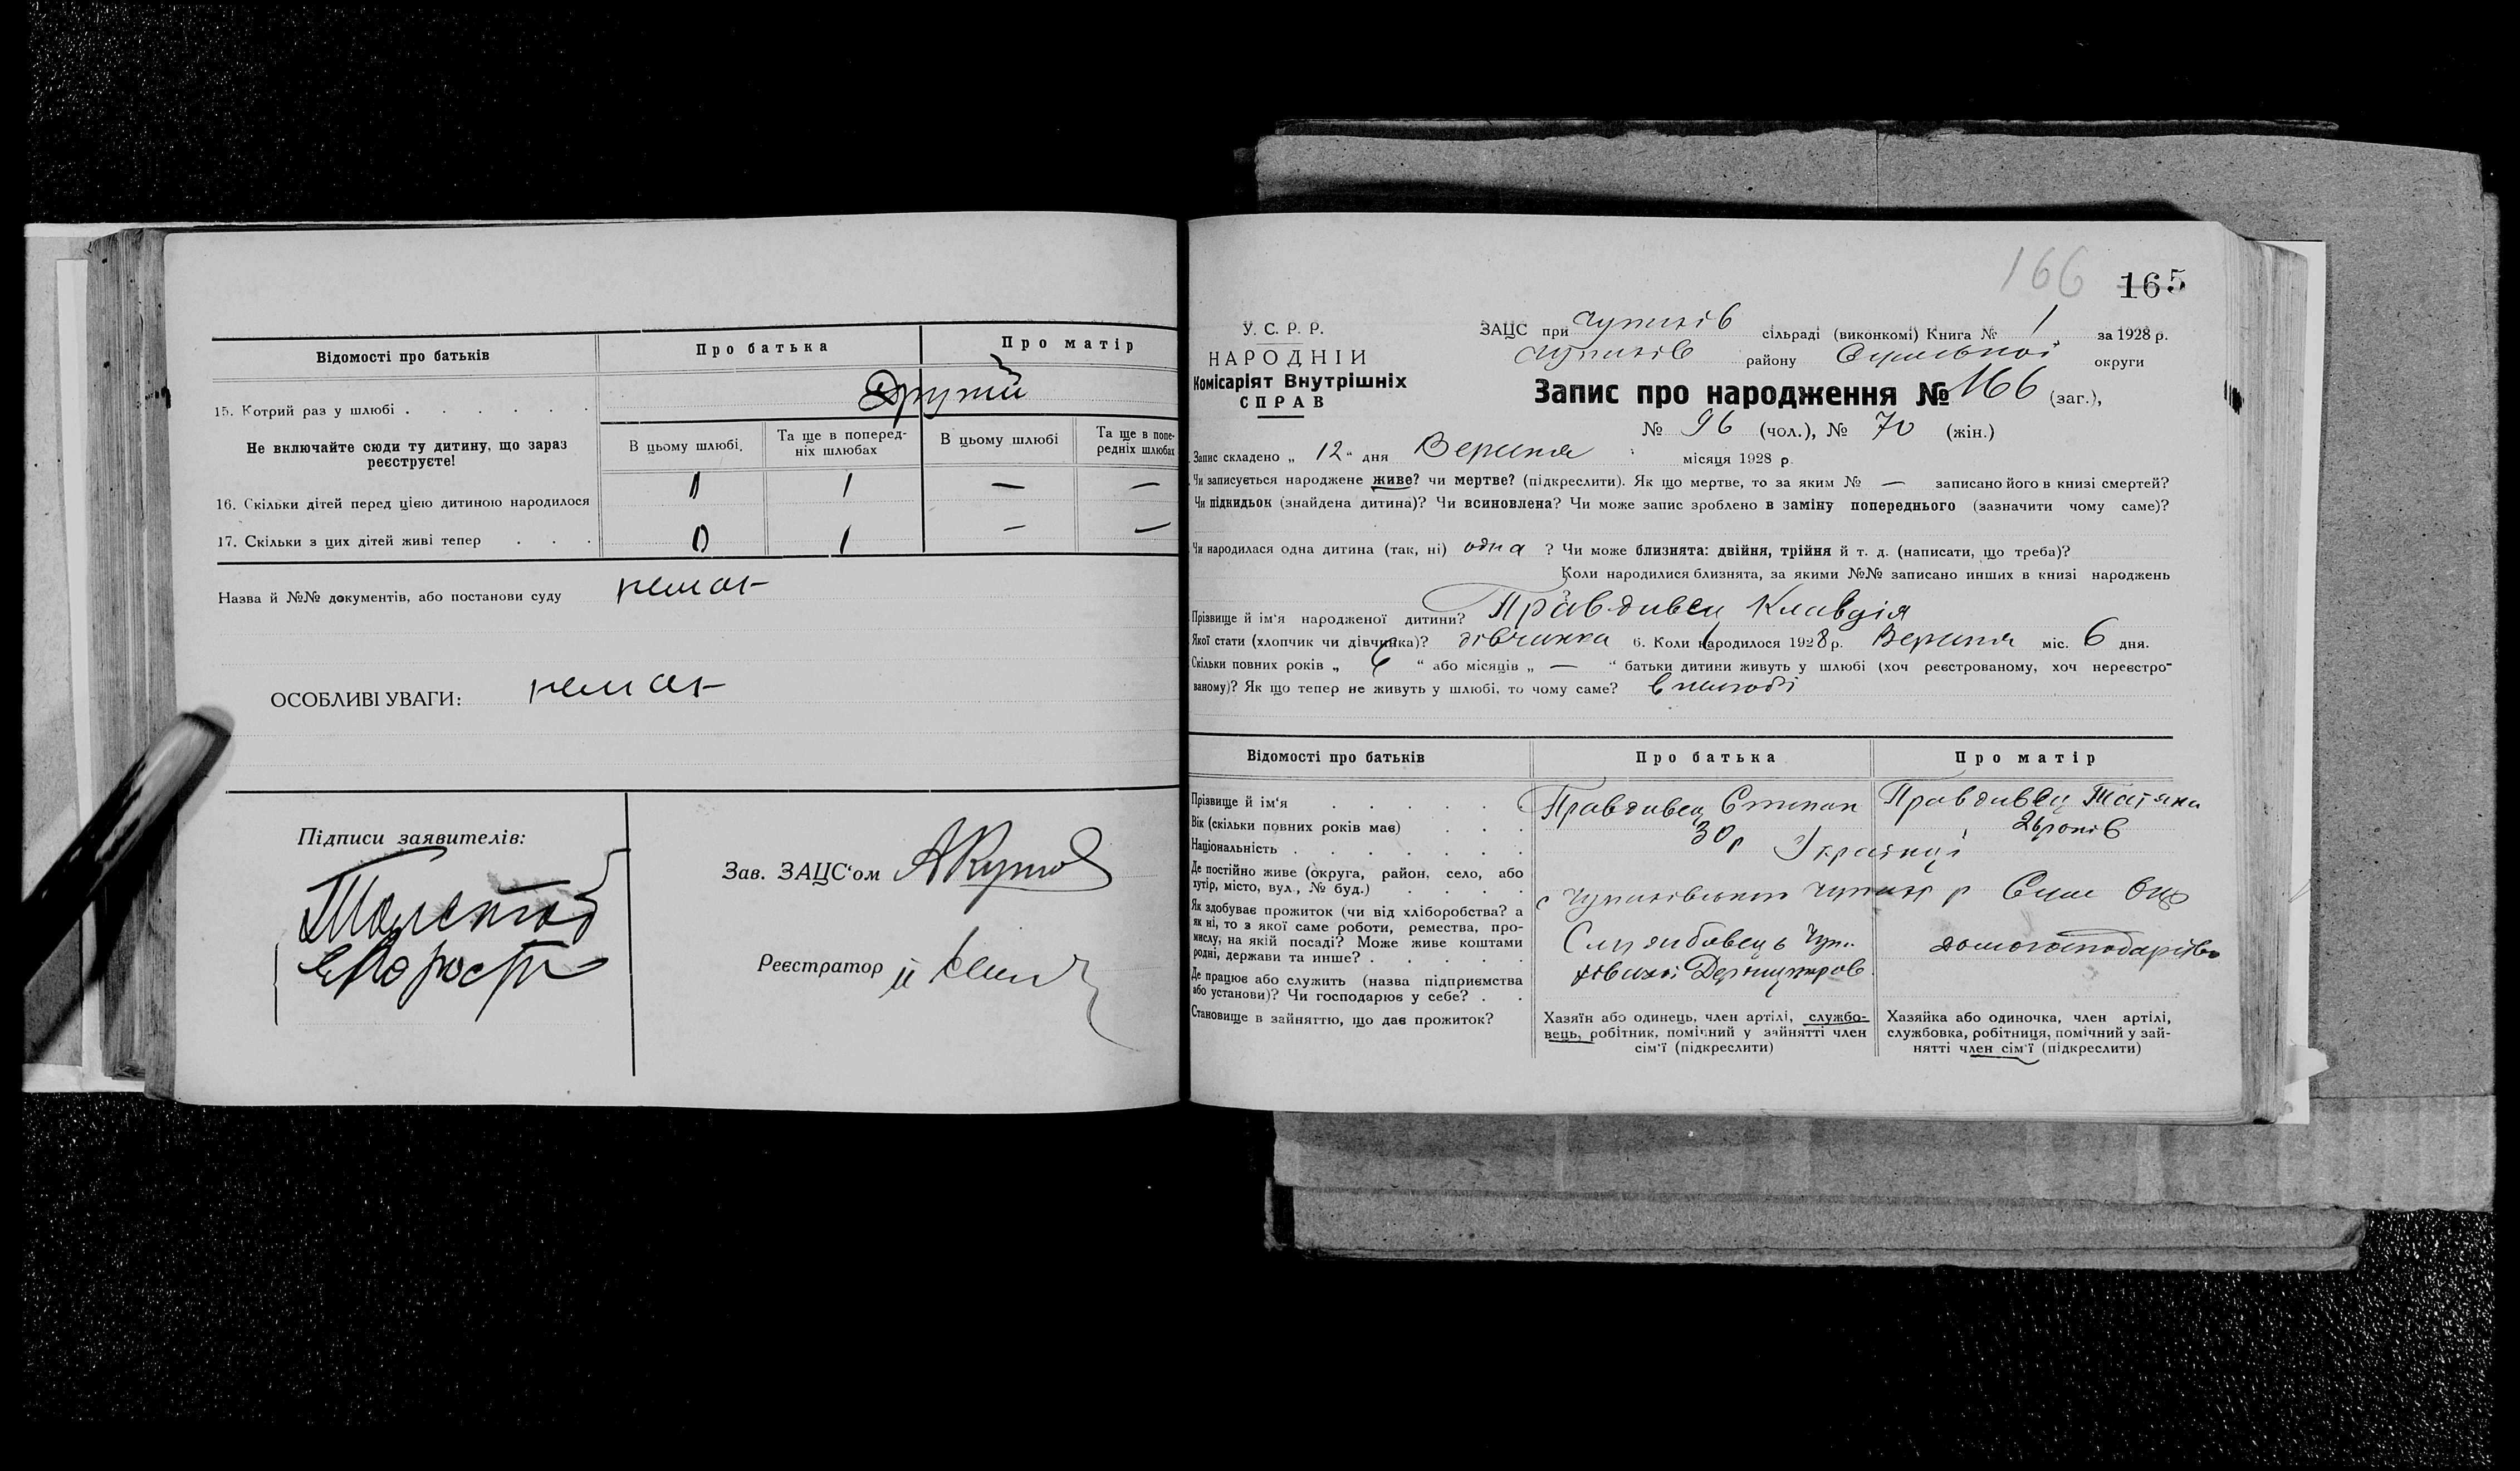 Відомості про батьків
Про батька
Про матір
15. Котрий раз у шлюбі
Другий
Не включайте сюди ту дитину, що зараз
реєструєте!
В цьому шлюбі.
Та ще в поперед-
ніх шлюбах
В цьому шлюбі
Та ще в попе-
редніх шлюбах
16. Скільки дітей перед цією дитиною народилося
1 1 — —
17. Скільки з цих дітей живі тепер
0 1 — —
Назва й №№ документів, або постанови суду
немає
ОСОБЛИВІ УВАГИ: немає
Підписи заявителів:
Зав. ЗАЦС'ом
Реєстратор
166 165
У. С. Р. Р.
НАРОДНІЙ
Комісаріят Внутрішніх
СПРАВ
ЗАЦС при Чупахів сільраді (виконкомі) Книга № 1 за 1928 р.
Чупахів району Сумської округи
Запис про народження № 166 (заг.),
№ 96 (чол.), № 70 (жін.)
Запис складено „ 12 “ дня Вересня місяця 1928 р.
Чи записується народжене живе? чи мертве? (підкреслити). Як що мертве, то за яким № — записано його в книзі смертей?
Чи підкидьок (знайдена дитина)? Чи всиновлена? Чи може запис зроблено в заміну попереднього (зазначити чому саме)?
Чи народилася одна дитина (так, ні) одна ? Чи може близнята: двійня, трійня й т. д. (написати, що треба)?
Коли народилися близнята, за якими №№ записано инших в книзі народжень
Прізвище й ім'я народженої дитини? Правдивец Клавдія
Якої стати (хлопчик чи дівчинка)? дівчинка 6. Коли народилося 1928 р. Вересня міс. 6 дня.
Скільки повних років „ “ або місяців „ — “ батьки дитини живуть у шлюбі (хоч реєстрованому, хоч нереєстро-
ваному)? Як що тепер не живуть у шлюбі, то чому саме? в шлюбі
Відомості про батьків
Про батька
Про матір
Прізвище й ім'я
Правдивец Степан
Правдивец Татяна
Вік (скільки повних років має)
30 р
26 років
Національність
Українці
Де постійно живе (округа, район, село, або
хутір, місто, вул., № буд.)
Як здобуває прожиток (чи від хліборобства? а
як ні, то з якої саме роботи, ремества, про-
мислу, на якій посаді? Може живе коштами
родні, держави та инше?
Службовець
домогосподарство
Де працює або служить (назва підприємства
або установи)? Чи господарює у себе?
Становище в зайняттю, що дає прожиток?
Хазяїн або одинець, член артілі, службо-
вець, робітник, помічний у зайнятті член
сім'ї (підкреслити)
Хазяйка або одиночка, член артілі,
службовка, робітниця, помічний у зай-
нятті член сім'ї (підкреслити)